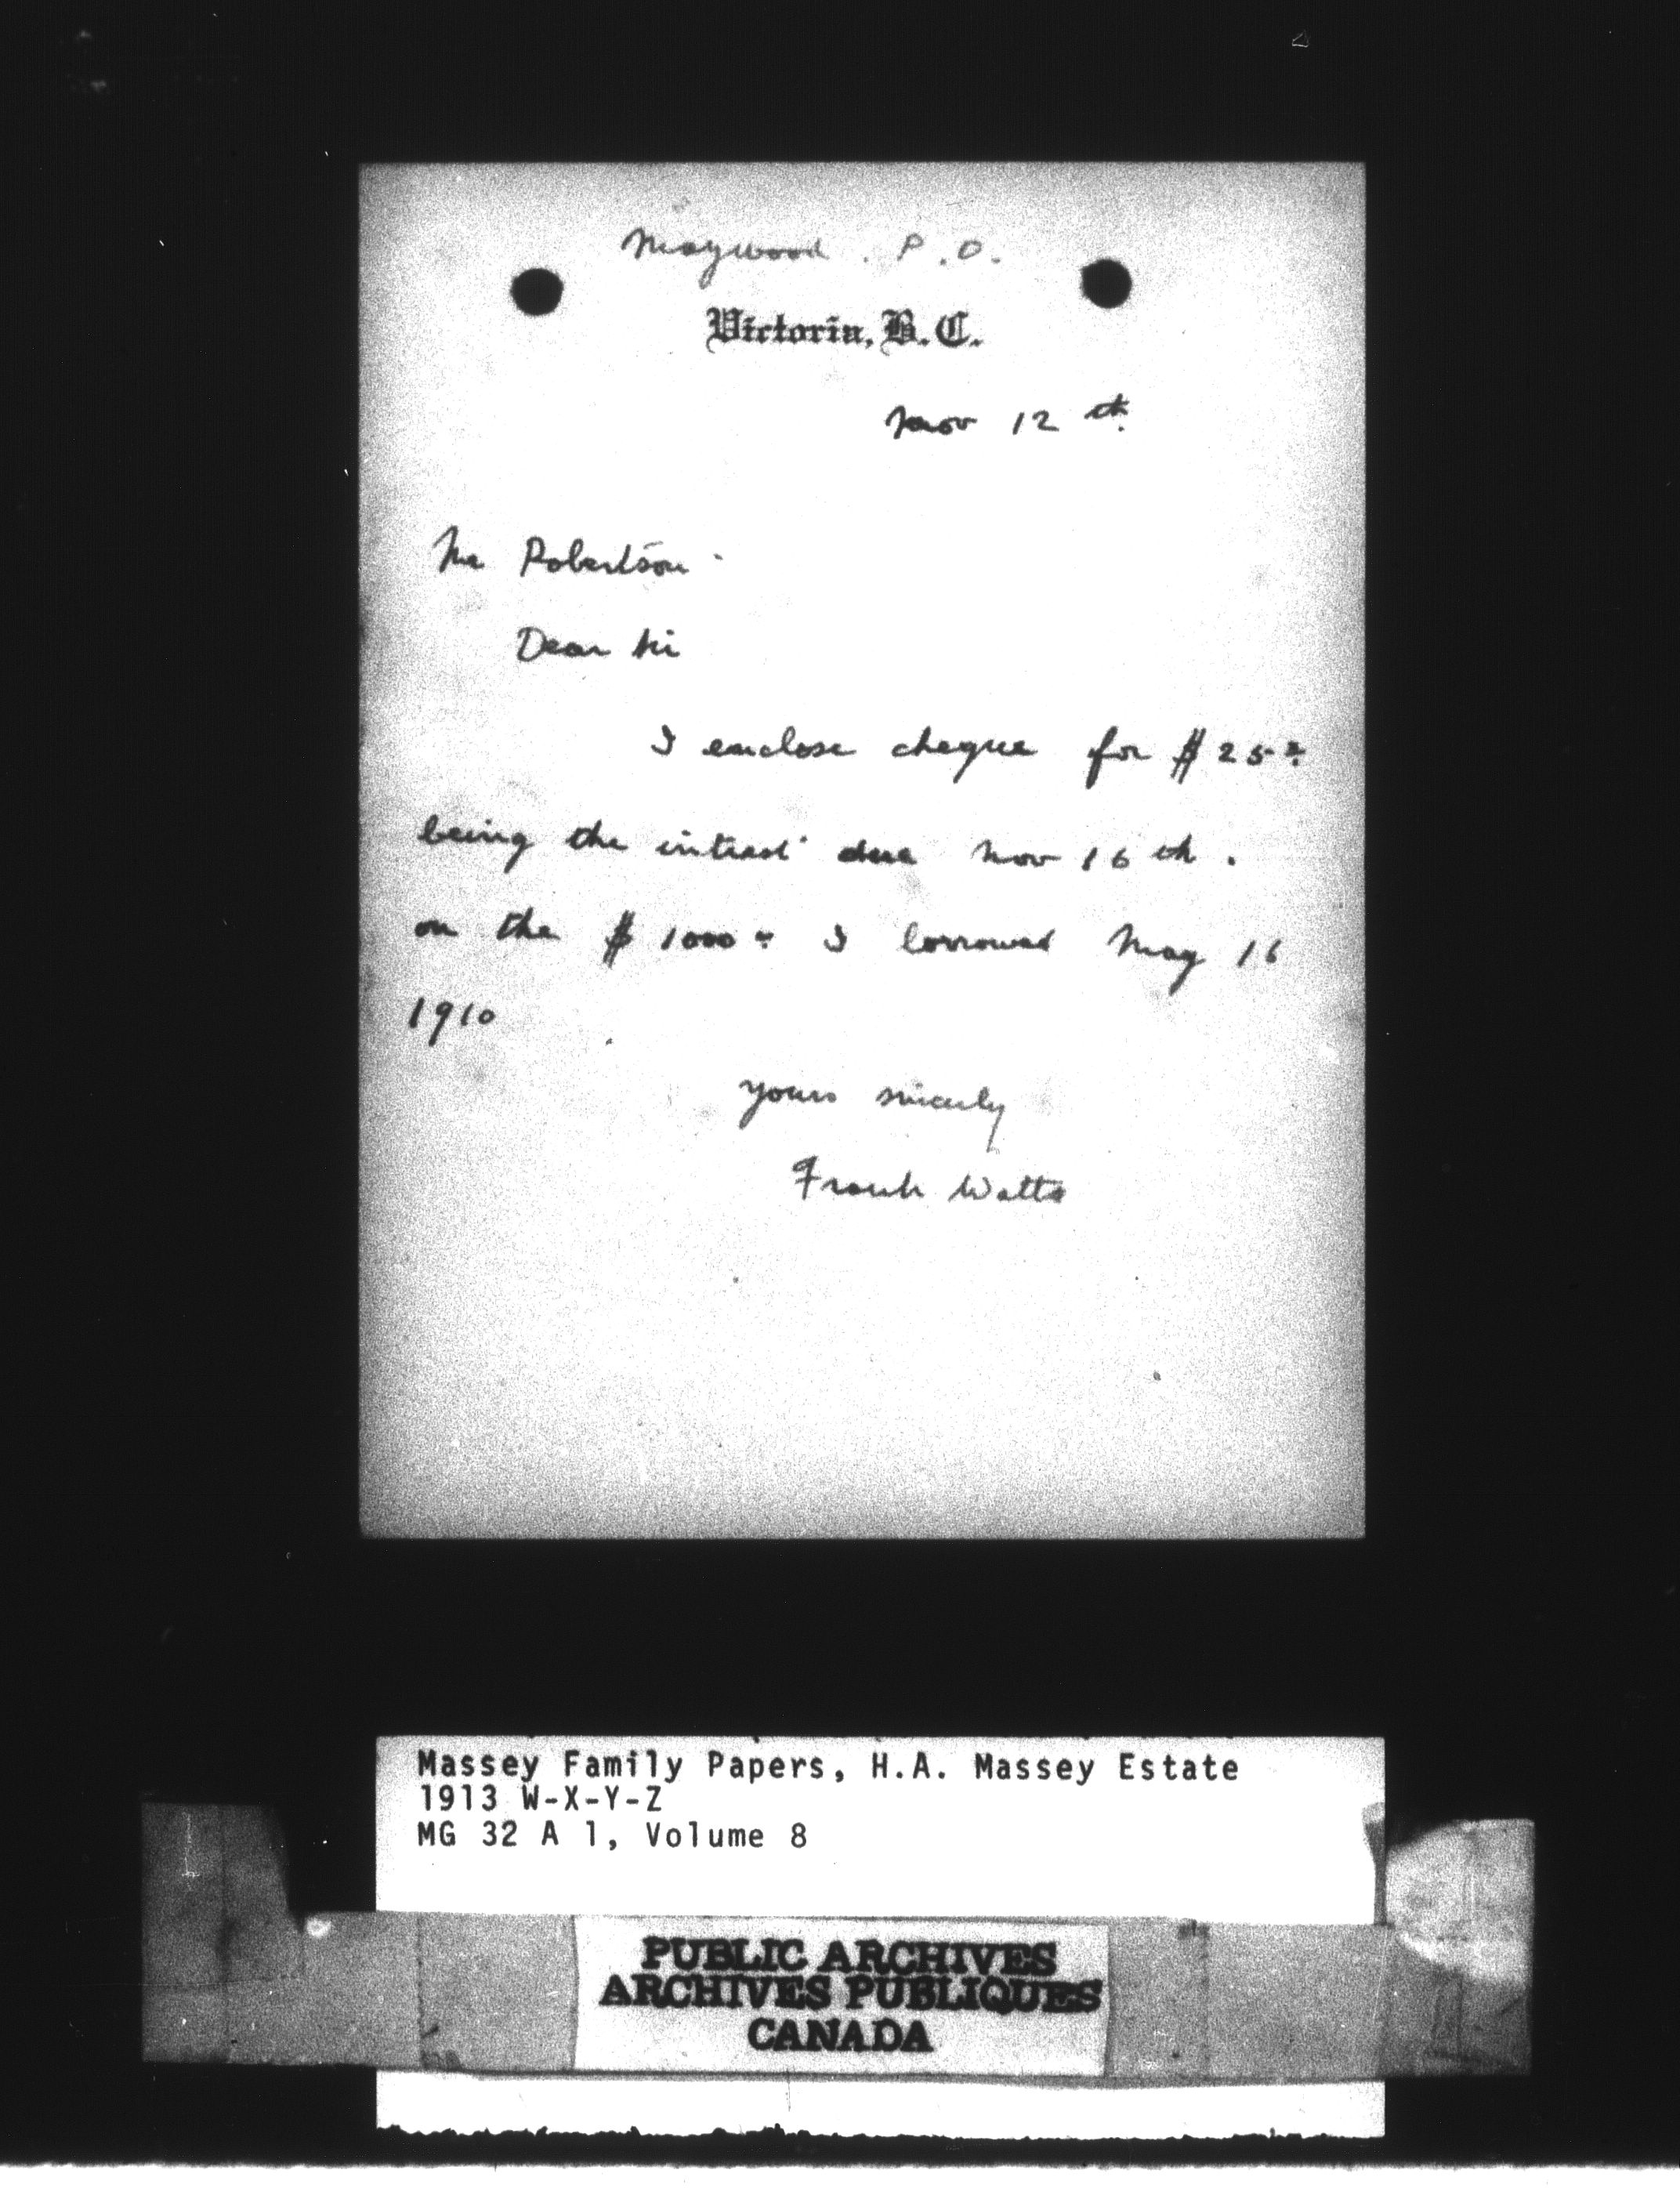 Maywood . P.O.
Victoria, B.C.
Nov 12 th
Mr Robertson -
Dear Sir
I enclose cheque for $25.00
being the interest due Nov 16 th.
on the $1000.00 I borrowed May 16
1910
yours sincerely
Frank Watts
Massey Family Papers, H.A. Massey Estate
1913 W-X-Y-Z
MG 32 A 1, Volume 8
PUBLIC ARCHIVES
ARCHIVES PUBLIQUES
CANADA